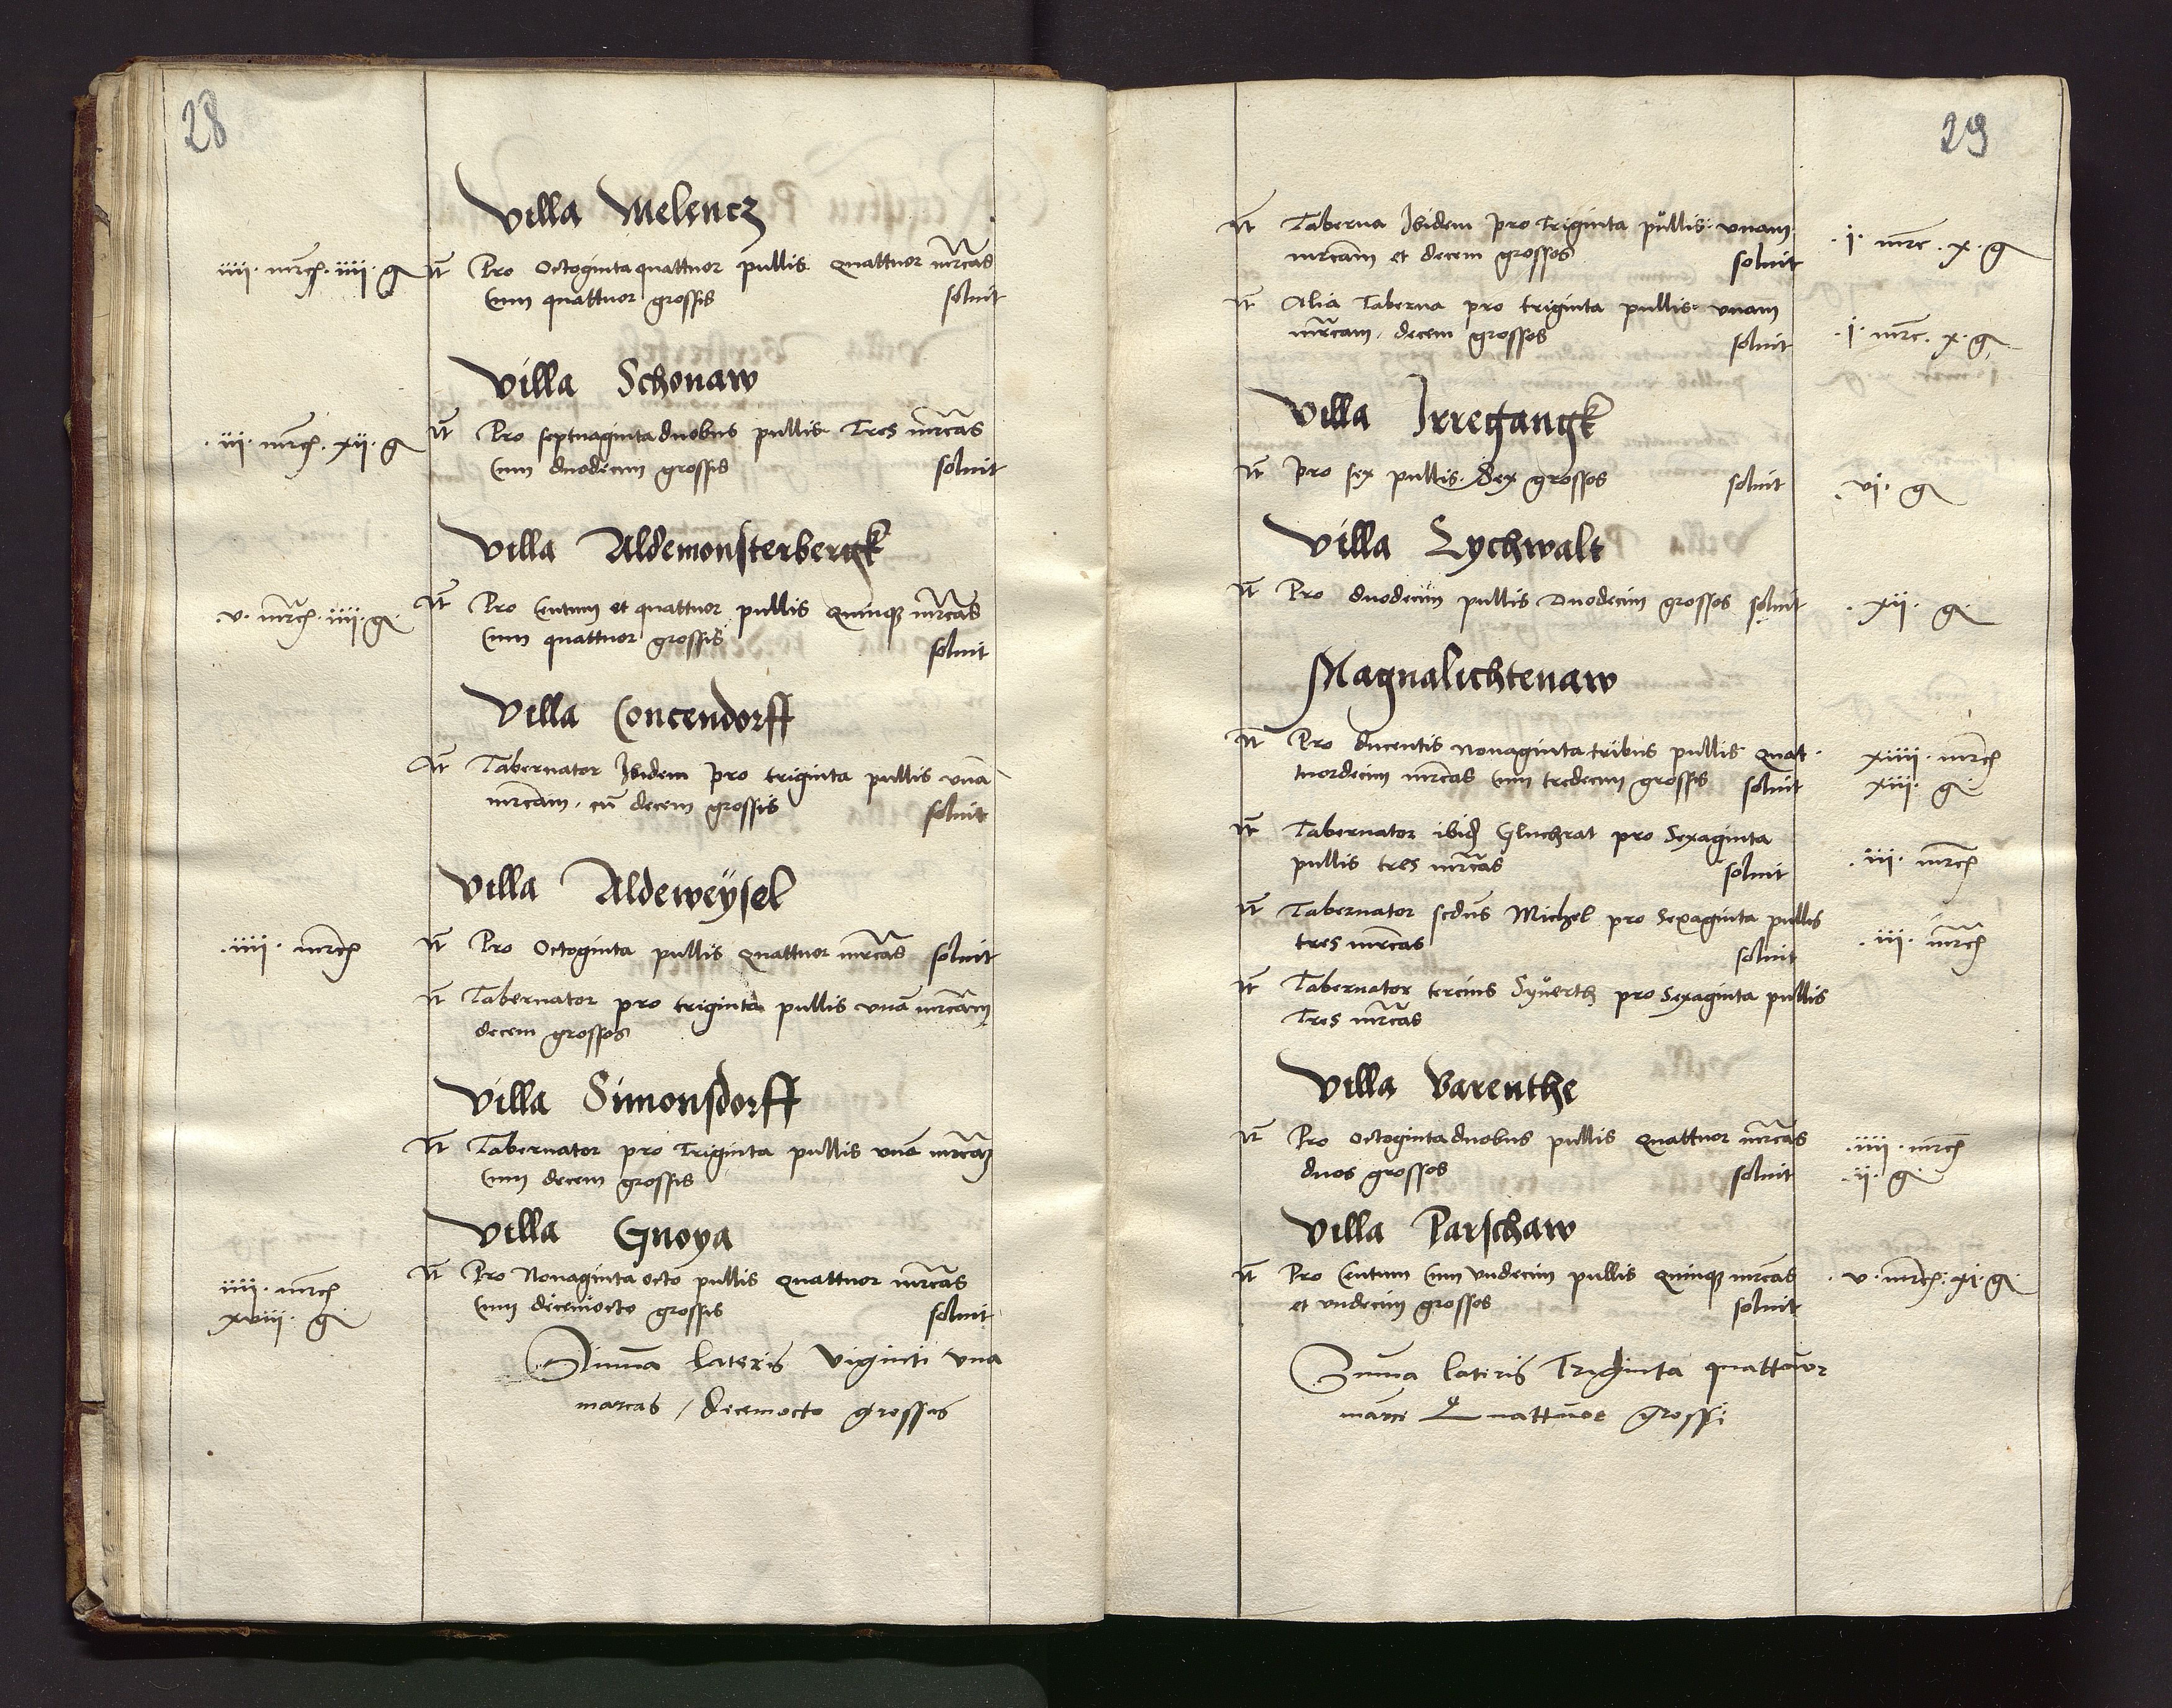 28
Villa Melencz
.iiii. mrc. iiii. g
It Pro Octogintaquattuor pullis quattuor mrcas
Cum quattuor grossis soluit
Villa Schonaw
.iii. mrc. xii. g
It Pro septuagintaduobus pullis Tres mrcas
Cum duodecim grossis soluit
Villa Aldemonsterbergk
.v. mrc. iiii. g.
It Pro Centum et quattuor pullis quinque mrcas
Cum quattuor grossis soluit
Villa Concendorff
It Tabernator Ibidem pro triginta pullis vna
mrcam. cu decem grossis soluit
Villa Aldeweÿsel
.iiii. mrc
It Pro Octoginta pullis quattuor mrcas soluit
It Tabernator pro triginta pullis vna mrcam
decem grossos
Villa Simonsdorff
It Tabernator pro Triginta pullis vna mrcam
Cum decem grossis
Villa Gnoya
iiii. mrc
xviii. g.
It Pro Nonaginta octo pullis quattuor mrcas
Cum decemocto grossis soluit
Suma lateris viginti vna
marcas / decemocto grossos
29
It Taberna Ibidem pro triginta pullis. vnam
mrcam et decem grossos soluit
.i. mrc. x. g
It Alia Taberna pro triginta pullis. vnam
mrcam. decem grossos soluit
.i. mrc. x. g.
Villa Irregangk
It Pro sex pullis. Sex grossos soluit
.vi. g
Villa Lychwalt
It Pro duodecim pullis Duodecim grossos soluit
.xii. g.
Magnalichtenaw
It Pro ducentis nonaginta tribus pullis quat
tuordecim mrcas cum tredecim grossis soluit
xiiii. mrc
xiii. g.
It Tabernator ibid Gluchrat pro Sexaginta
pullis tres mrcas soluit
.iii. mrc
It Tabernator scdus Michel pro Sexaginta pullis
tres mrcas soluit
.iii. mrc
It Tabernator tercius Syuerth pro Sexaginta pullis
Tres mrcas
Villa Barenthe
It Pro octogintaduobus pullis quattuor mrcas
duos grossos soluit
.iiii. mrc
.ii. g.
Villa Parschaw
It Pro Centum Cum vndecim pullis quinque mrcas
et vndecim grossos soluit
.v. mrc. xi. g.
Suma lateris Triginta quattuor
marci Quattuor grossi